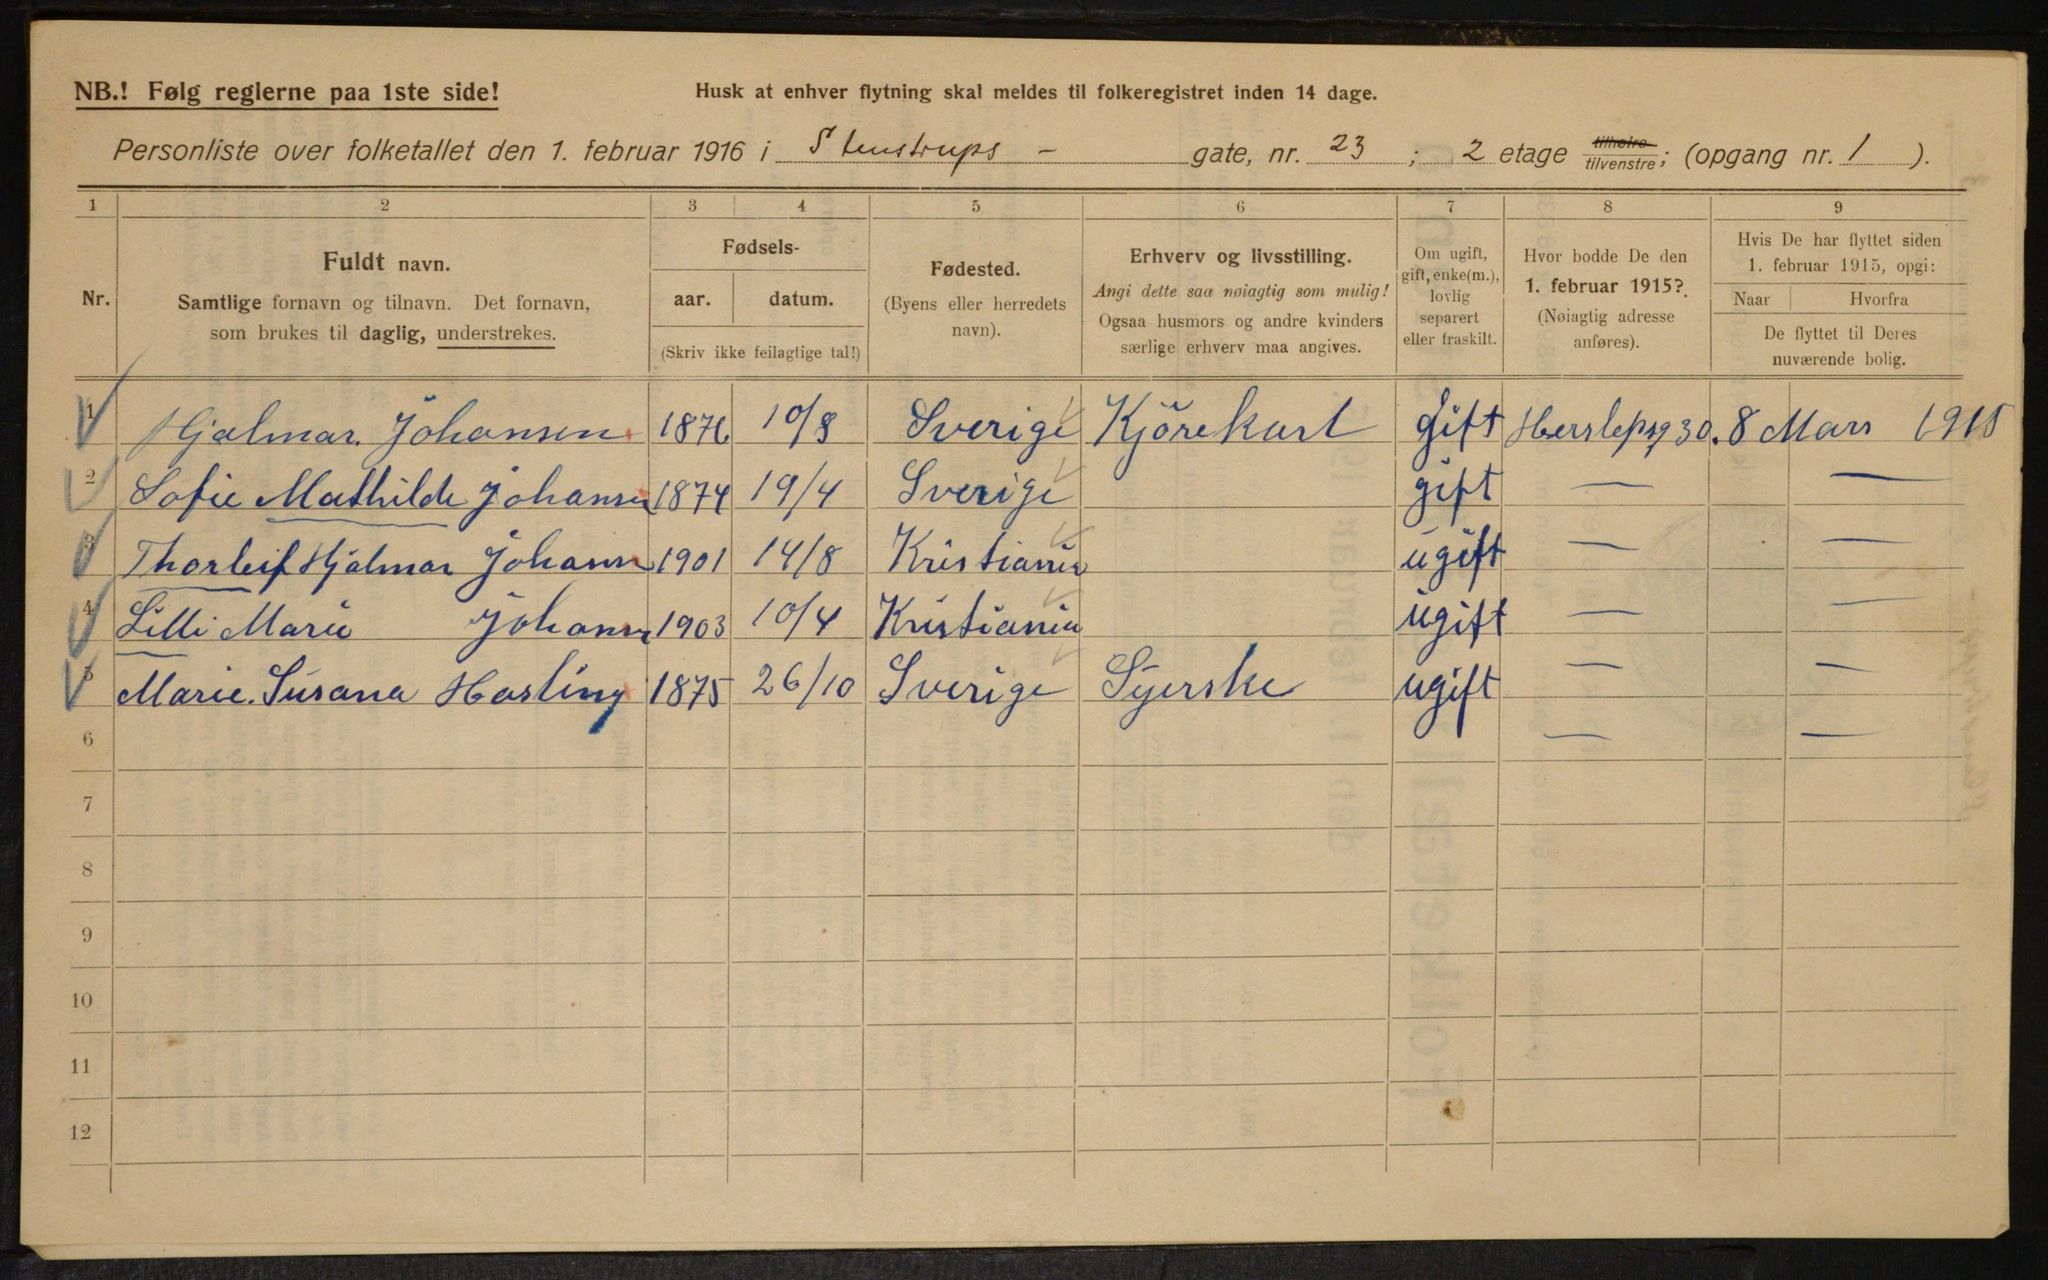 NB.! Følg reglerne paa 1ste side!
Husk at enhver flytning skal meldes til folkeregistret inden 14 dage.
Personliste over folketallet den 1. februar 1916 i Stenstrups - gate, nr. 23 ; 2 etage tilhøire tilvenstre; (opgang nr. 1 ).
1 2 3 4 5 6 7 8 9
Nr.
Fuldt navn.
Samtlige fornavn og tilnavn. Det fornavn,
som brukes til daglig, understrekes.
Fødsels-
aar. datum.
(Skriv ikke feilagtige tal!)
Fødested.
(Byens eller herredets
navn).
Erhverv og livsstilling.
Angi dette saa nøiagtig som mulig!
Ogsaa husmors og andre kvinders
særlige erhverv maa angives.
Om ugift,
gift, enke(m.),
lovlig
separert
eller fraskilt.
Hvor bodde De den
1. februar 1915?
(Nøiagtig adresse
anføres).
Hvis De har flyttet siden
1. februar 1915, opgi:
Naar Hvorfra
De flyttet til Deres
nuværende bolig.
1 Hjalmar. Johansen 1876 10/8 Sverige Kjörekarl gift Herslepsg 30. 8 Mars 1915
2 Sofie Mathilde Johansen 1874 19/4 Sverige gift — —
3 Thorleif Hjalmar Johansen 1901 14/8 Kristiania ugift — —
4 Lilli Marie Johansen 1903 10/4 Kristiania ugift — —
5 Marie. Susana Hasling 1875 26/10 Sverige Syerske ugift — —
6 — —
7
8
9
10
11
12